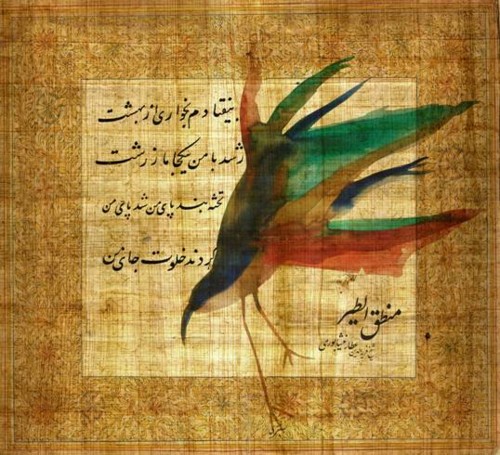 بیفتادم بخواری از بهشت
شد با من بیکجا مار زشت
تخته بند پای من شد پای من
کردند خلوت جای من
منطق الطیر
عطار نیشابوری